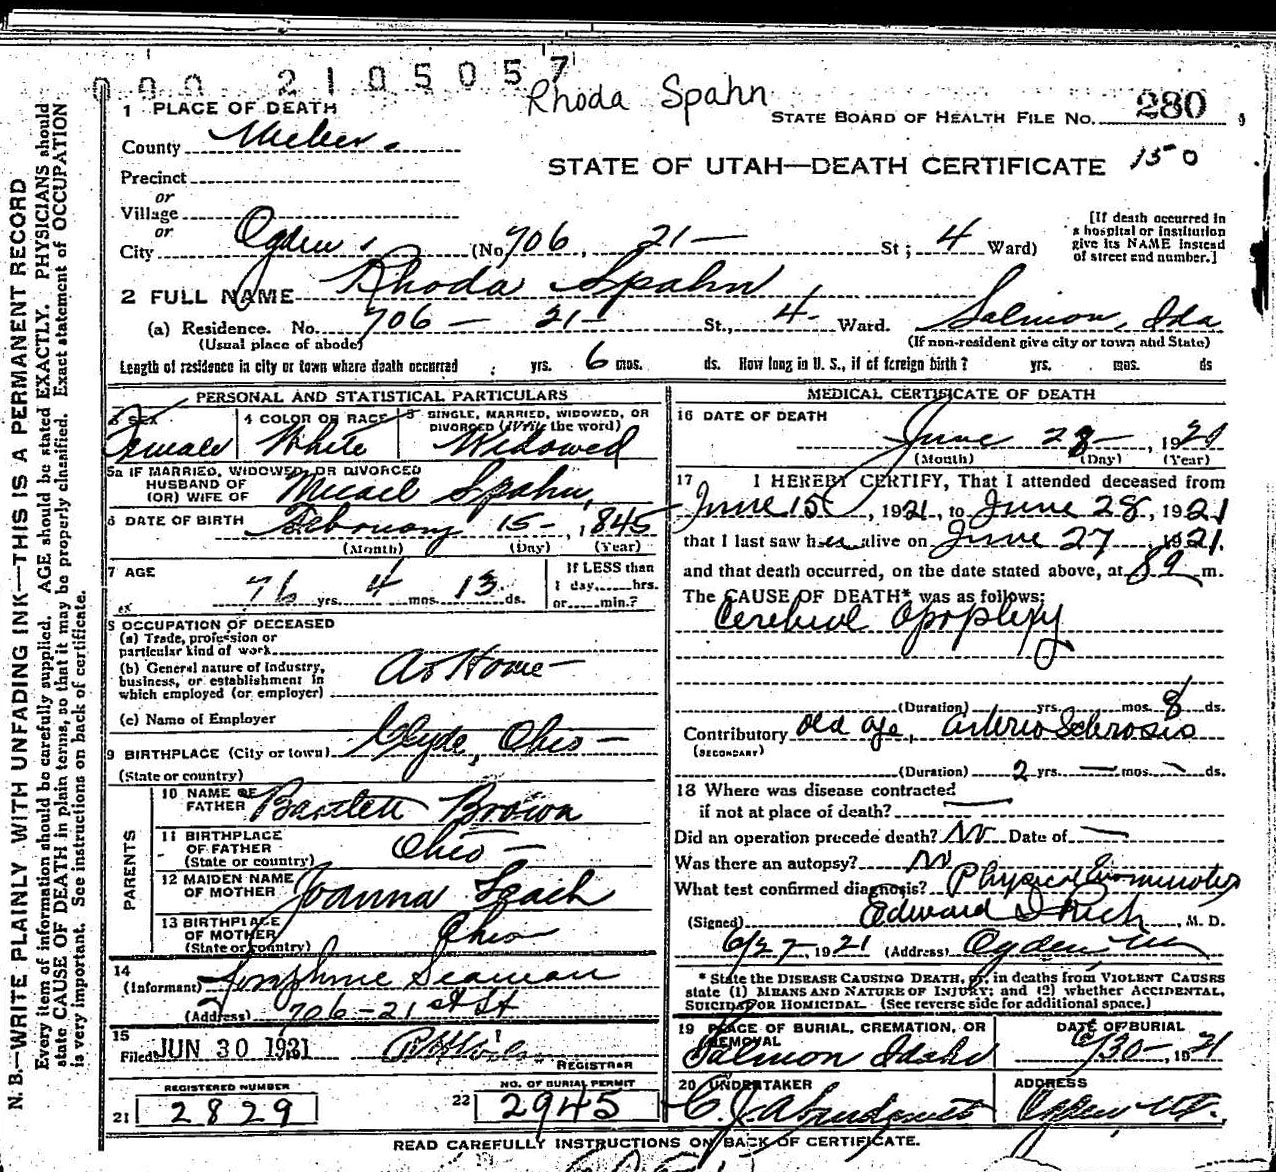 0 0 0 2 1 0 5 0 5 7
Rhoda Spahn
1 PLACE OF DEATH
STATE BOARD OF HEALTH FILE NO. 280
County Weber.
STATE OF UTAH—DEATH CERTIFICATE 150
Precinct
or
Village
or
City Ogden. (No 706, 21— St; 4 Ward)
[If death occurred in
a hospital or institution
give its NAME instead
of street and number.]
2 FULL NAME Rhoda Spahn
(a) Residence. No. 706 — 21— St., 4- Ward. Salmon, Ida
(Usual place of abode)
(If non-resident give city or town and State)
Length of residence in city or town where death occurred yrs. 6 mos. ds. How long in U. S., if of foreign birth? yrs. mos. ds
PERSONAL AND STATISTICAL PARTICULARS
3 SEX
Female
4 COLOR OR RACE
White
5 SINGLE, MARRIED, WIDOWED, OR
DIVORCED (Write the word)
Widowed
5a IF MARRIED, WIDOWED, OR DIVORCED
HUSBAND OF
(OR) WIFE OF Micael Spahn,
6 DATE OF BIRTH February 15—, 1845
(Month) (Day) (Year)
7 AGE
76 yrs. 4 mos. 13 ds.
If LESS than
1 day, hrs.
or min.?
8 OCCUPATION OF DECEASED
(a) Trade, profession or
particular kind of work
(b) General nature of industry,
business, or establishment in
which employed (or employer)
At Home—
(c) Name of Employer
9 BIRTHPLACE (City or town) Clyde, Ohio—
(State or country)
PARENTS
10 NAME OF
FATHER Bartlett Brown
11 BIRTHPLACE
OF FATHER
(State or country) Ohio—
12 MAIDEN NAME
OF MOTHER Joanna Leach
13 BIRTHPLACE
OF MOTHER
(State or country) Ohio
14
(Informant) Josphine Seaman
(Address) 706-21st St
15
Filed JUN 30 1921
REGISTRAR
REGISTERED NUMBER
21 2829
NO. OF BURIAL PERMIT
22 2945
MEDICAL CERTIFICATE OF DEATH
16 DATE OF DEATH
June 28—, 1921
(Month) (Day) (Year)
17 I HEREBY CERTIFY, That I attended deceased from
June 15, 1921, to June 28, 1921
that I last saw her alive on June 27, 1921.
and that death occurred, on the date stated above, at m.
The CAUSE OF DEATH* was as follows:
Cerebral Apoplexy
(Duration) yrs. mos. 8 ds.
Contributory old age, arterio Sclerosis
(SECONDARY)
(Duration) 2 yrs. — mos. ds.
18 Where was disease contracted
if not at place of death?
Did an operation precede death? No Date of —
Was there an autopsy? No
What test confirmed diagnosis? Physical Examination
(Signed) Edward I Rich, M. D.
6/27, 1921 (Address) Ogden
* State the DISEASE CAUSING DEATH, or, in deaths from VIOLENT CAUSES
state (1) MEANS AND NATURE OF INJURY; and (2) whether ACCIDENTAL,
SUICIDAL OR HOMICIDAL. (See reverse side for additional space.)
19 PLACE OF BURIAL, CREMATION, OR
REMOVAL
Salmon Idaho
DATE OF BURIAL
6/30—, 1921
20 UNDERTAKER
ADDRESS
Ogden Ut.
READ CAREFULLY INSTRUCTIONS ON BACK OF CERTIFICATE.
N. B.—WRITE PLAINLY WITH UNFADING INK—THIS IS A PERMANENT RECORD
Every item of information should be carefully supplied. AGE should be stated EXACTLY. PHYSICIANS should
state CAUSE OF DEATH in plain terms, so that it may be properly classified. Exact statement of OCCUPATION
is very important. See instructions on back of certificate.